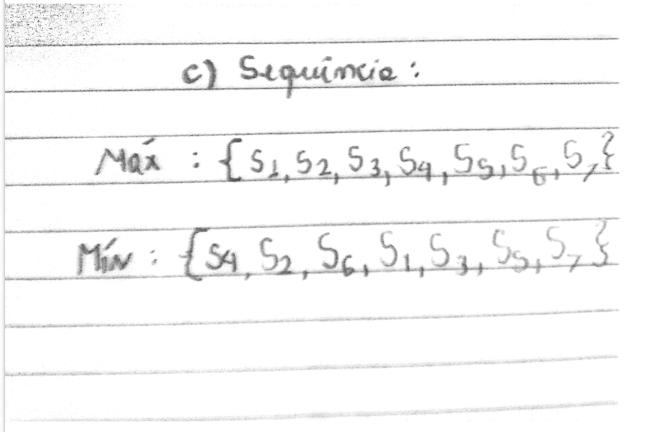 c) Sequência:
Máx : {S1, S2, S3, S4, S5, S6, S7}
Mín : {S4, S2, S6, S1, S3, S5, S7}